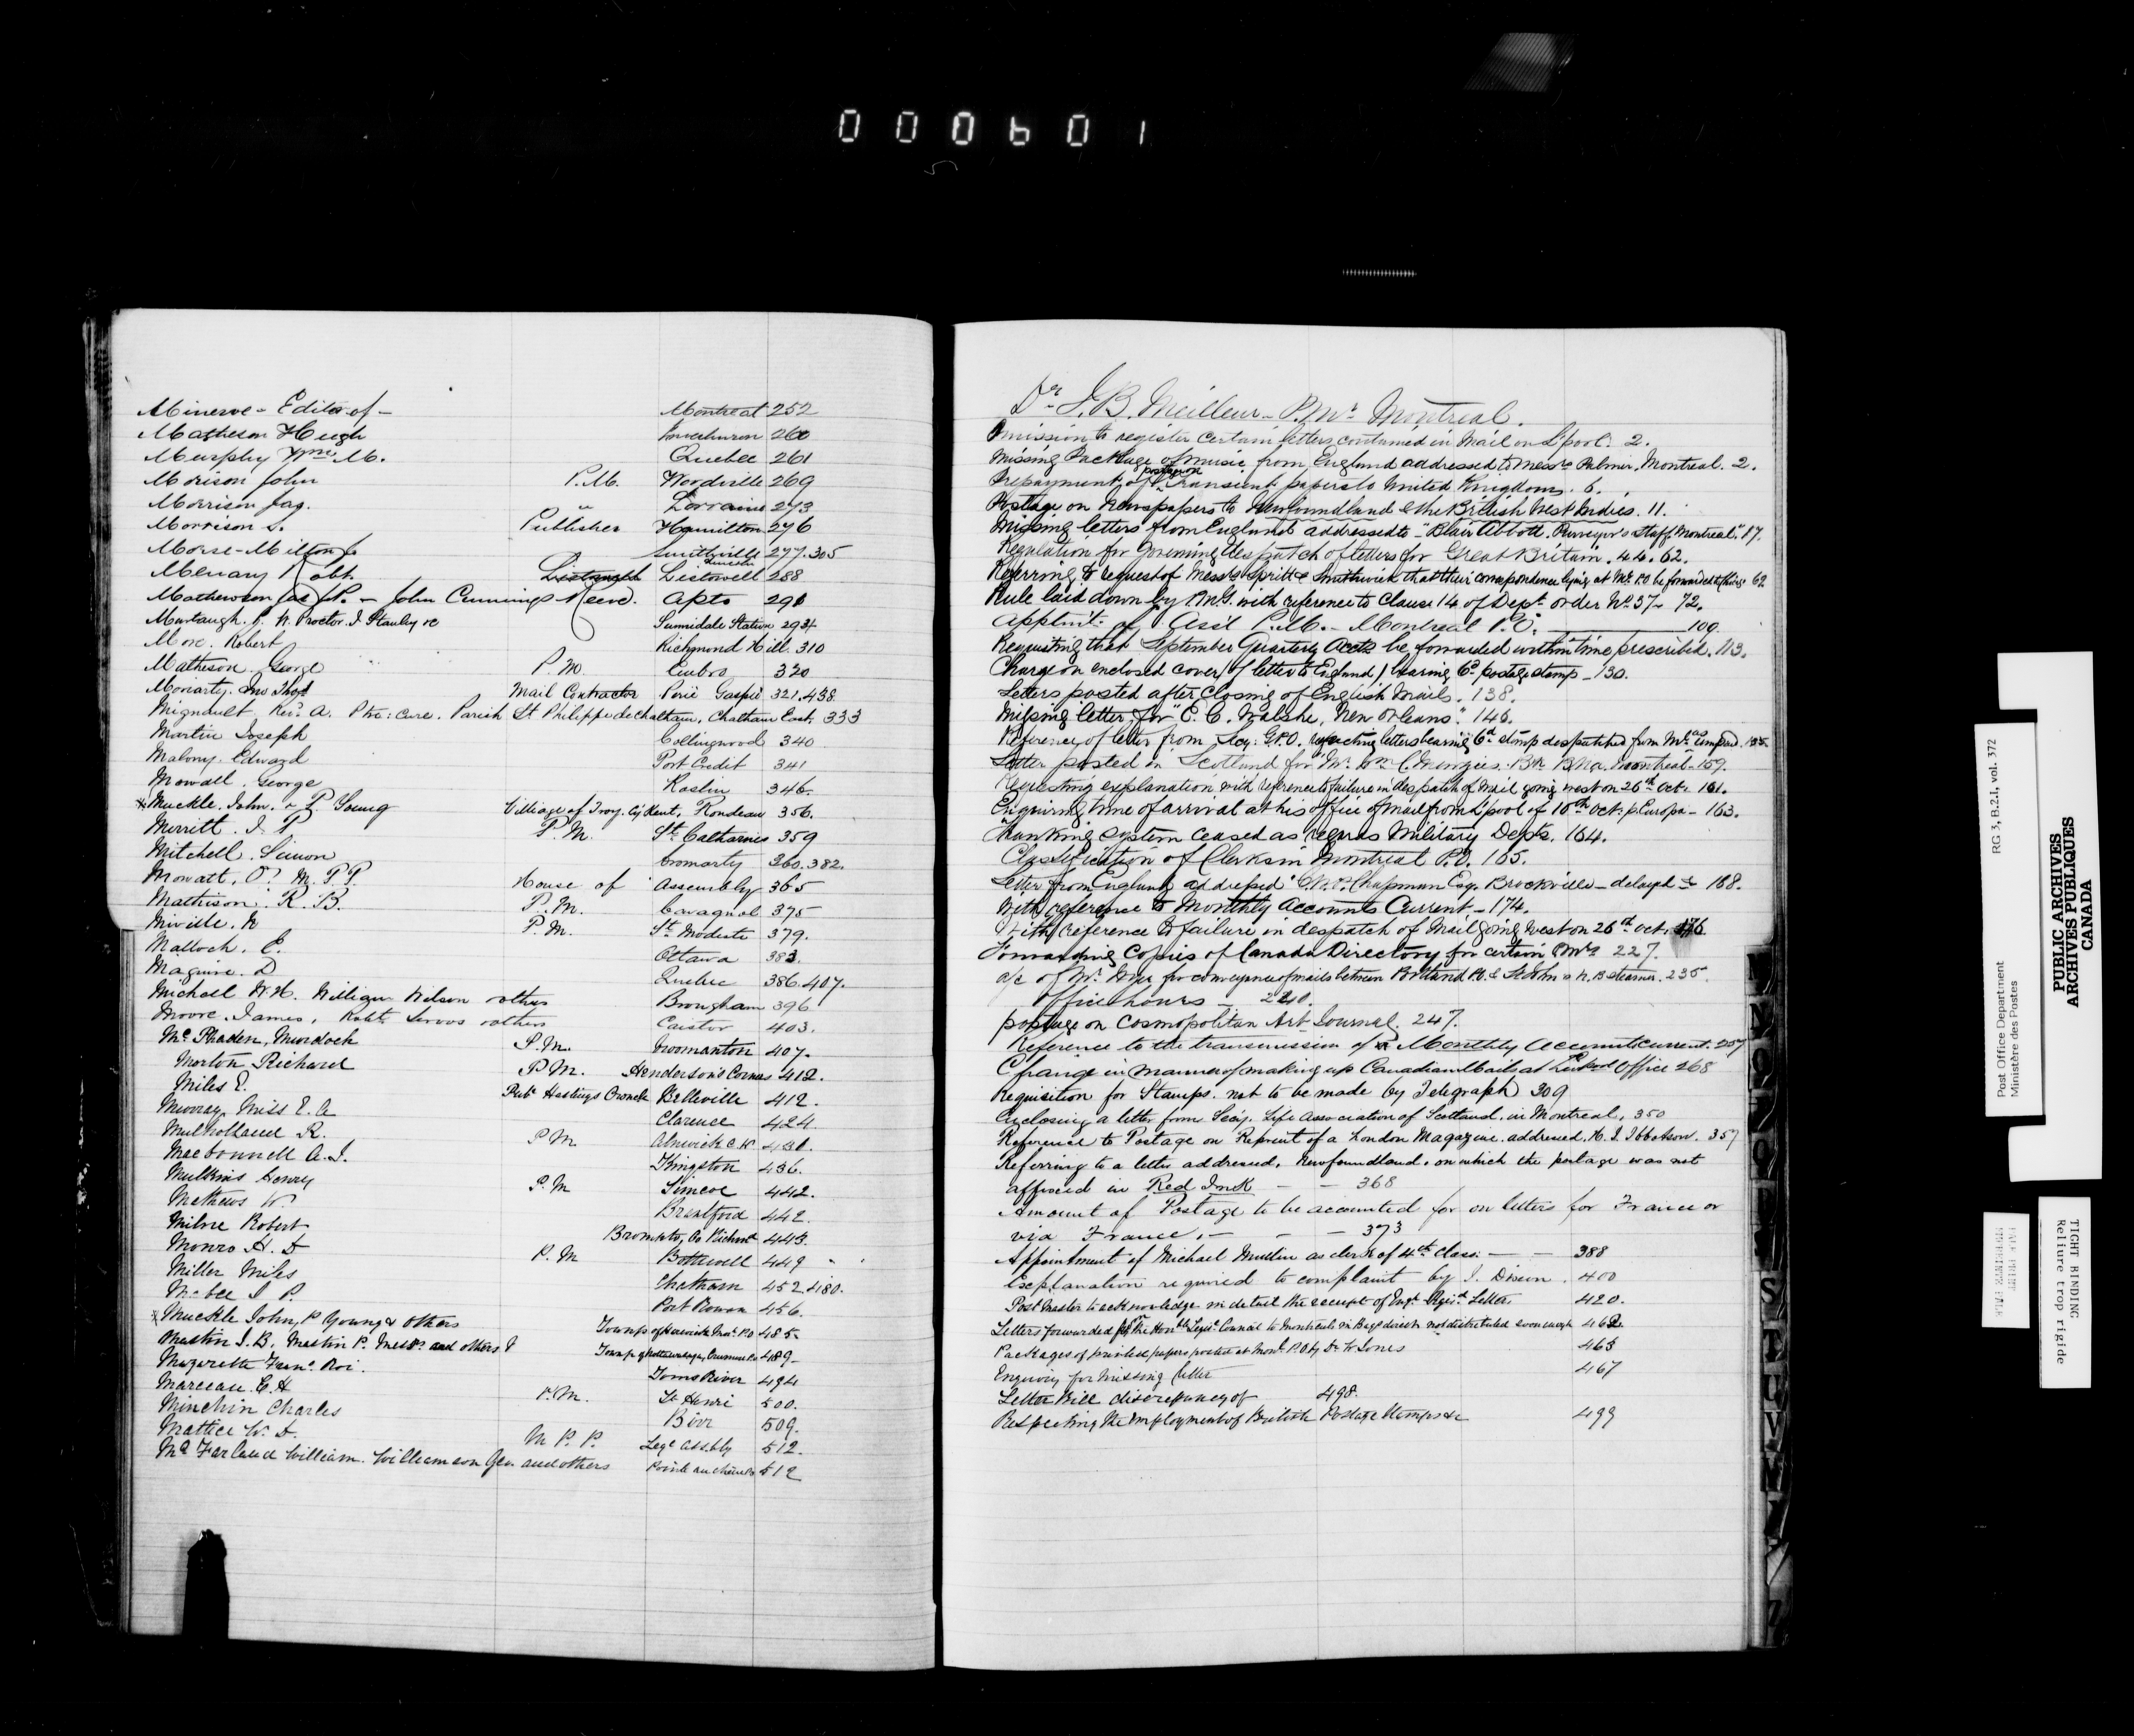 000601
Minerve - Editor of - Montreal 252
Matheson Hugh Inverhuron 260
Murphy Wm. M. Quebec 261
Morison John P.M. Woodville 269
Morrison Jas. " Lorraine 273
Morrison S. Publisher Hamilton 276
Morse - Milton J. Smithville 277.305
Lincoln
Menary Robt. Listowell 288
Mathewson Jas - John Cummings Reeve. Apto 291
Murtaugh. J. N. Proctor. J. Stanley &c Sunnidale Station 294
More. Robert Richmond Hill. 310
Matheson George P.M. Embro 320
Moriarty. Jno Thos Mail Contractor Percé Gaspé 321.438
Mignault Revd. A. Ptre: Cure. Parish St Philippe de Chatham, Chatham East, 333
Martin Joseph Collingwood 340
Malony. Edward Port Credit 341
Mowall. George Roslin 346.
* Muckle. John. & P. Young Village of Troy. Cy Kent, Rondeau 356.
Merritt. J. P. P.M. St. Catharines 359
Mitchell. Simon Cromarty 360.382.
Mowatt. O. M.P.P. House of Assembly 365
Mathison. R. B. P.M. Cavagnol 375
Miville. N P.M. St. Modeste 379.
Malloch. E. Ottawa 383.
Maguire. D Quebec 386.407.
Michell W.H. William Wilson & others Brougham 396
Moore. James. Robt. Servos & others Caistor 403.
Mc Phaden, Murdoch P.M. Vroomanton 407.
Morton Richard P.M. Henderson's Corners 412.
Miles E. Pubr Hastings Chronicle Belleville 412.
Murray, Miss E. A Clarence 424.
Mulholland R. P.M Alnwick C.W. 430.
Macdonnell A. J. Kingston 436.
Mulkins Henry P.M Simcoe 442.
Mathews W. Brantford 442.
Milne Robert Brompton, Co Richmd 443.
Monro H. D P.M Bothwell 449
Miller Miles Chatham 452.480.
Mabee S P. Port Rowan 456.
* Muckle John, P Young & others Townsp of Harwich 485.
Mastin J. B, Mastin P. and others 489
Mazerette Franc. Roi. Toms River 494
Marceau C. H P.M. St Henri 500.
Minchin Charles Birr 509.
Mattice W. D. M.P.P. Lege Assbly 512.
Mc Farland William. Williamson Geo and others 512
Dr. J. B. Meilleur - P.Mr. Montreal.
Omission to register certain letters contained in Mail on L'pool. 2.
Missing Package of music from England addressed to Messrs Palmer. Montreal. 2.
Prepayment of postage on Transient papers to United Kingdom. 6.
Postage on newspapers to Newfoundland & the British West Indies. 11.
Missing letters from England addressed to "Blair Abbott. Purveyor's Staff, Montreal" 17.
Regulation for governing despatch of letters for Great Britain. 44. 62.
Referring to request of Messrs Spritt & Smithwick that their correspondence lying at Mr. P.O be forwarded to 62
Rule laid down by P.M.G. with reference to Clause 14 of Dept. order No. 37 - 72.
Apptmt. of Asst P.M. - Montreal P.O. 109
Requesting that September Quarterly Accts be forwarded within time prescribed. 113.
Charge on enclosed cover (of letter to England) bearing 6d. postage stamp - 130.
Letters posted after closing of English Mails. 138.
Missing letter for "E. C. Walshe, New Orleans." 146.
Reference of letter from Secy: G.P.O. respecting letters bearing 6d stamp despatched from
Letter posted in Scotland for Mr. Wm. C. Menzies. Montreal - 159.
Requesting explanation with reference to failure in despatch of Mail going west on 26th Oct. 161.
Enquiring time of arrival at his office of mail from L'pool of 10th Oct: p. Europa - 163.
Franking system ceased as regards Military Depts. 164.
Classification of Clerks in Montreal P.O. 165.
Letter from England addressed Chapman Esq. Brockville - delayed &c 168.
With reference to Monthly Accounts Current - 174.
With reference to failure in despatch of Mail going west on 26th Oct. 176
Forwarding Copies of Canada Directory for certain PMrs 227.
a/c of Mr. for conveyance of mails between Portland & St John N.B. steamer. 235.
Office hours - 240.
postage on Cosmopolitan Art Journal. 247.
Reference to the transmission of Monthly Account Current. 257
Change in manner of making up Canadian Mail at L'pool Office 268
Requisition for Stamps. not to be made by Telegraph 309
Enclosing a letter from Secy. Life Association of Scotland, in Montreal, 350
Reference to Postage on Reprint of a London Magazine. addressed, H. J. Ibbotson. 357
Referring to a letter addressed, Newfoundland. on which the postage was not
affixed in Red Ink - - 368
Amount of Postage to be accounted for on letters for France or
via France. - - - 373
Appointment of Michael Mullin as clerk of 4th Class. - - 388
Explanation required to complaint by J. Dixon. 400
Post Master to acknowledge in detail the receipt of Regist. Letter 420.
Letters forwarded for the Honble Legis. Council to Montreal in Bags direct not distributed soon enough 462.
Packages of printed papers posted at Mont. P.O by Dr W Jones 463
Enquiry for Missing letter 467
Letter Bill discrepancy of 498.
Respecting the employment of British Postage Stamps &c 499
N
S
T
U
V
W
Post Office Department RG 3, B.2.1, vol. 372
Ministère des Postes
PUBLIC ARCHIVES
ARCHIVES PUBLIQUES
CANADA
TIGHT BINDING
Reliure trop rigide